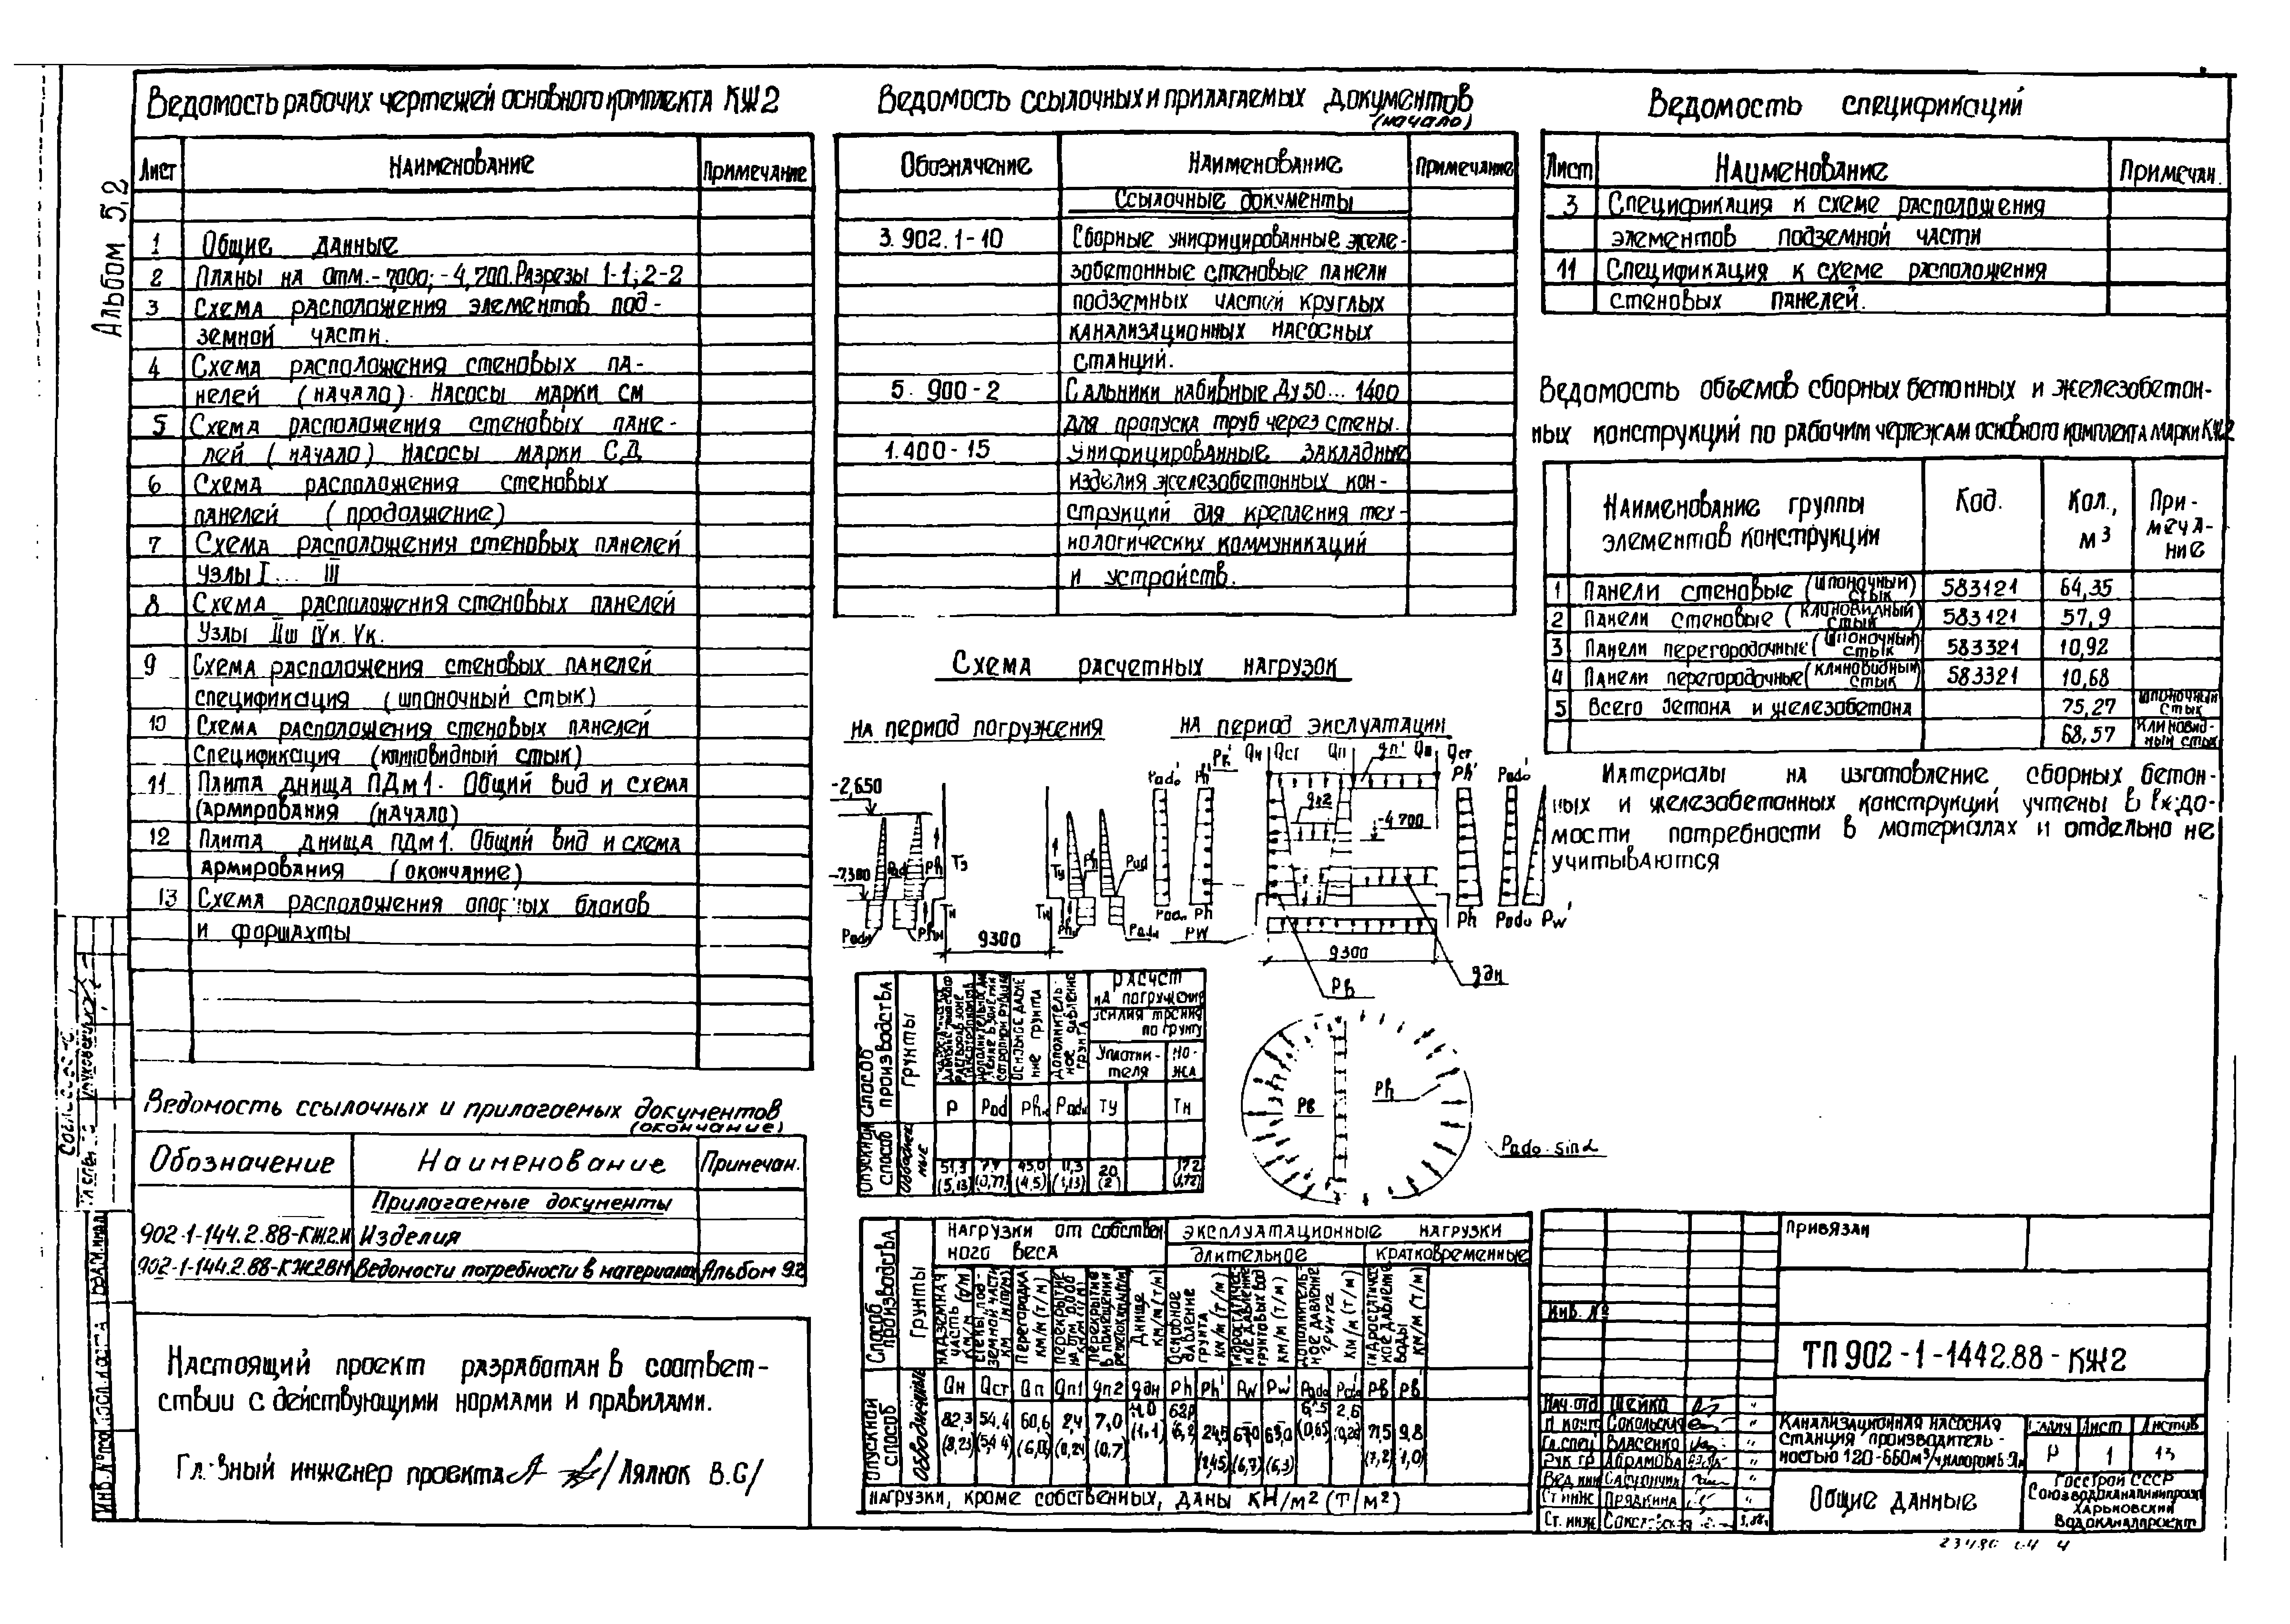 Альбом 5,2
Ведомость рабочих чертежей основного комплекта КЖ2
Лист Наименование Примечание
1 Общие данные
2 Планы на отм.-7,000; -4,700. Разрезы 1-1; 2-2
3 Схема расположения элементов под-
земной части.
4 Схема расположения стеновых па-
нелей (начало). Насосы марки СМ
5 Схема расположения стеновых пане-
лей (начало) Насосы марки С.Д
6 Схема расположения стеновых
панелей (продолжение)
7 Схема расположения стеновых панелей
Узлы I... III
8 Схема расположения стеновых панелей
Узлы IIш IVк. Vк.
9 Схема расположения стеновых панелей
спецификация (шпоночный стык)
10 Схема расположения стеновых панелей
Спецификация (клиновидный стык)
11 Плита днища ПДм1. Общий вид и схема
(армирования (начало)
12 Плита днища ПДм1. Общий вид и схема
армирования (окончание)
13 Схема расположения опорных блоков
и форшахты
Ведомость ссылочных и прилагаемых документов
(окончание)
Обозначение Наименование Примечан.
Прилагаемые документы
902-1-144.2.88-КЖ2.И Изделия
902-1-144.2.88-КЖ2ВМ Ведомости потребности в материалах Альбом 9.2
Настоящий проект разработан в соответ-
ствии с действующими нормами и правилами.
Главный инженер проекта /Лялюк В.С/
Ведомость ссылочных и прилагаемых документов
(начало)
Обозначение Наименование Примечание
Ссылочные документы
3.902.1-10 Сборные унифицированные желе-
зобетонные стеновые панели
подземных частей круглых
канализационных насосных
станций.
5.900-2 Сальники набивные Ду50... 1400
для пропуска труб через стены.
1.400-15 Унифицированные закладные
изделия железобетонных кон-
струкций для крепления тех-
нологических коммуникаций
и устройств.
Схема расчетных нагрузок
на период погружения на период эксплуатации
-2,650
Qн Qст Qп qп' Qн Qст
Pado' Ph' Pк' Ph' Pado'
qп2
-4.700
Pad Ph Tз Tу Ph Pad
Tн Tн
9300
Pado Ph
PW
Ph Pado Pw'
9300
qдн
Pв
Pв Ph
Pado·sinα
Способ производства
Грунты
Дополнительное давление грунта
расчет
на погружения
усилия трения
по грунту
Уплотни-
теля
Но-
жа
P Pad Ph Pad Tу Tн
Опускной способ
Обводненные
51,3 7,7 45,0 11,3 20 17,2
(5,13) (0,77) (4,5) (1,13) (2) (1,72)
Нагрузки от собствен
ного веса
эксплуатационные нагрузки
длительное кратковременные
Способ производства
Грунты
Надземная часть
Перегородка
км/м (т/м)
Днище
км/м (т/м)
Основное давление грунта
км/м (т/м)
Qн Qст Qп qп1 qп2 qдн Ph Ph' Pw Pw' Pado Pado' Pв Pв'
Опускной способ
Обводненные
82,3 54,4 60,6 2,4 7,0 11.0 62,0 24,5 67,0 63,0 6,5 2,6 71,5 9,8
(8,23) (5,44) (6,06) (0,24) (0,7) (1.1) (6,2) (2,45) (6,7) (6,3) (0,65) (0,26) (7,2) (1,0)
нагрузки, кроме собственных, даны КН/м² (т/м²)
Ведомость спецификаций
Лист Наименование Примечан.
3 Спецификация к схеме расположения
элементов подземной части
11 Спецификация к схеме расположения
стеновых панелей.
Ведомость объемов сборных бетонных и железобетон-
ных конструкций по рабочим чертежам основного комплекта марки КЖ2
Наименование группы
элементов конструкции
Код.
Кол.,
м³
При-
меча-
ние
1 Панели стеновые (шпоночный стык) 583121 64,35
2 Панели стеновые (клиновидный стык) 583121 57,9
3 Панели перегородочные (шпоночный стык) 583321 10,92
4 Панели перегородочные (клиновидный стык) 583321 10,68
5 Всего бетона и железобетона 75,27 шпоночный стык
68,57 Клиновид-
ный стык
Материалы на изготовление сборных бетон-
ных и железобетонных конструкций учтены в Ведо-
мости потребности в материалах и отдельно не
учитываются
Привязан
Инв. №
ТП 902-1-144.2.88-КЖ2
Нач.отд Шейко
Н.контр Сокольская
Гл.спец Власенко
Рук.гр Абрамова
Вед.инж
Ст.инж Прядкина
Ст.инж
Канализационная насосная
станция производитель-
ностью 120-660м³/ч, напором 6-9м
Стадия Лист Листов
Р 1 13
Общие данные
Госстрой СССР
Союзводоканалниипроект
Харьковский
Водоканалпроект
Согласовано
Инв. № подл. Подп. и дата Взам.инв.